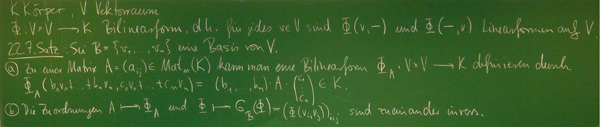 K Körper, V Vektorraum
Φ: V×V → K Bilinearform, d.h. für jedes v∈V sind Φ(v,–) und Φ(–,v) Linearformen auf V.
22.7. Satz: Sei B = {v₁,...,vₙ} eine Basis von V.
(a) Zu einer Matrix A = (aᵢⱼ) ∈ Matₙ(K) kann man eine Bilinearform Φ_A: V×V → K definieren durch
Φ_A(b₁v₁+...+bₙvₙ, c₁v₁+...+cₙvₙ) = (b₁,...,bₙ) · A · (c₁ ⋮ cₙ) ∈ K.
(b) Die Zuordnungen A ↦ Φ_A und Φ ↦ G_B(Φ) = (Φ(vᵢ,vⱼ))ᵢ,ⱼ sind zueinander invers.